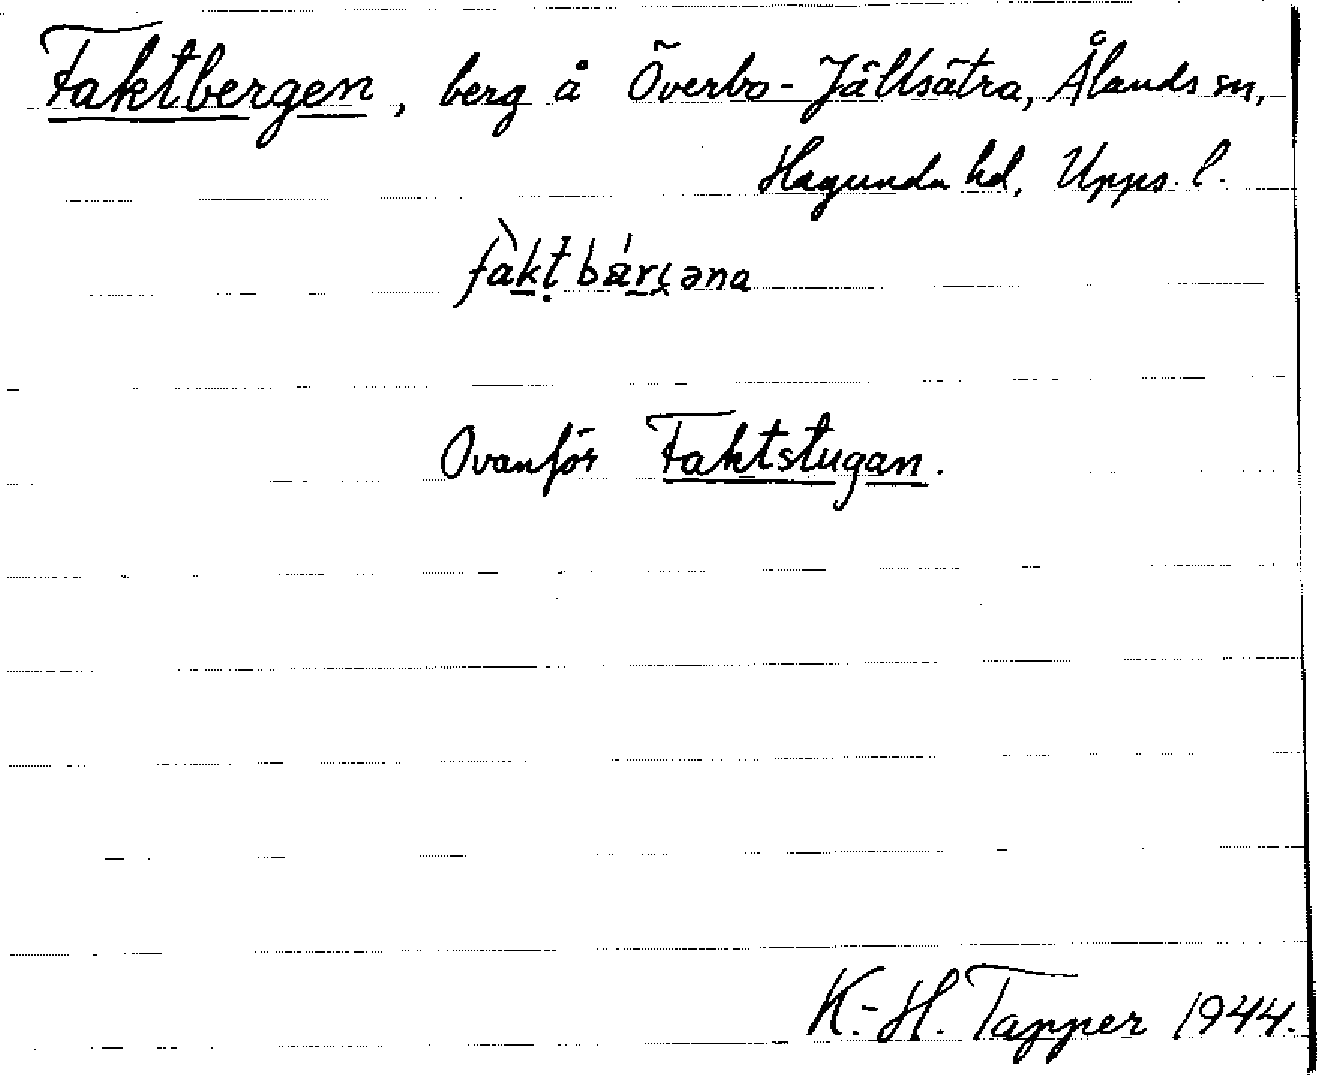 Faktbergen, berg å Överbo-Jällsätra, Ålands sn,
Hagunda hd, Upps. l.
fàktbárɩəna
Ovanför Faktstugan.
K.-H. Tapper 1944.